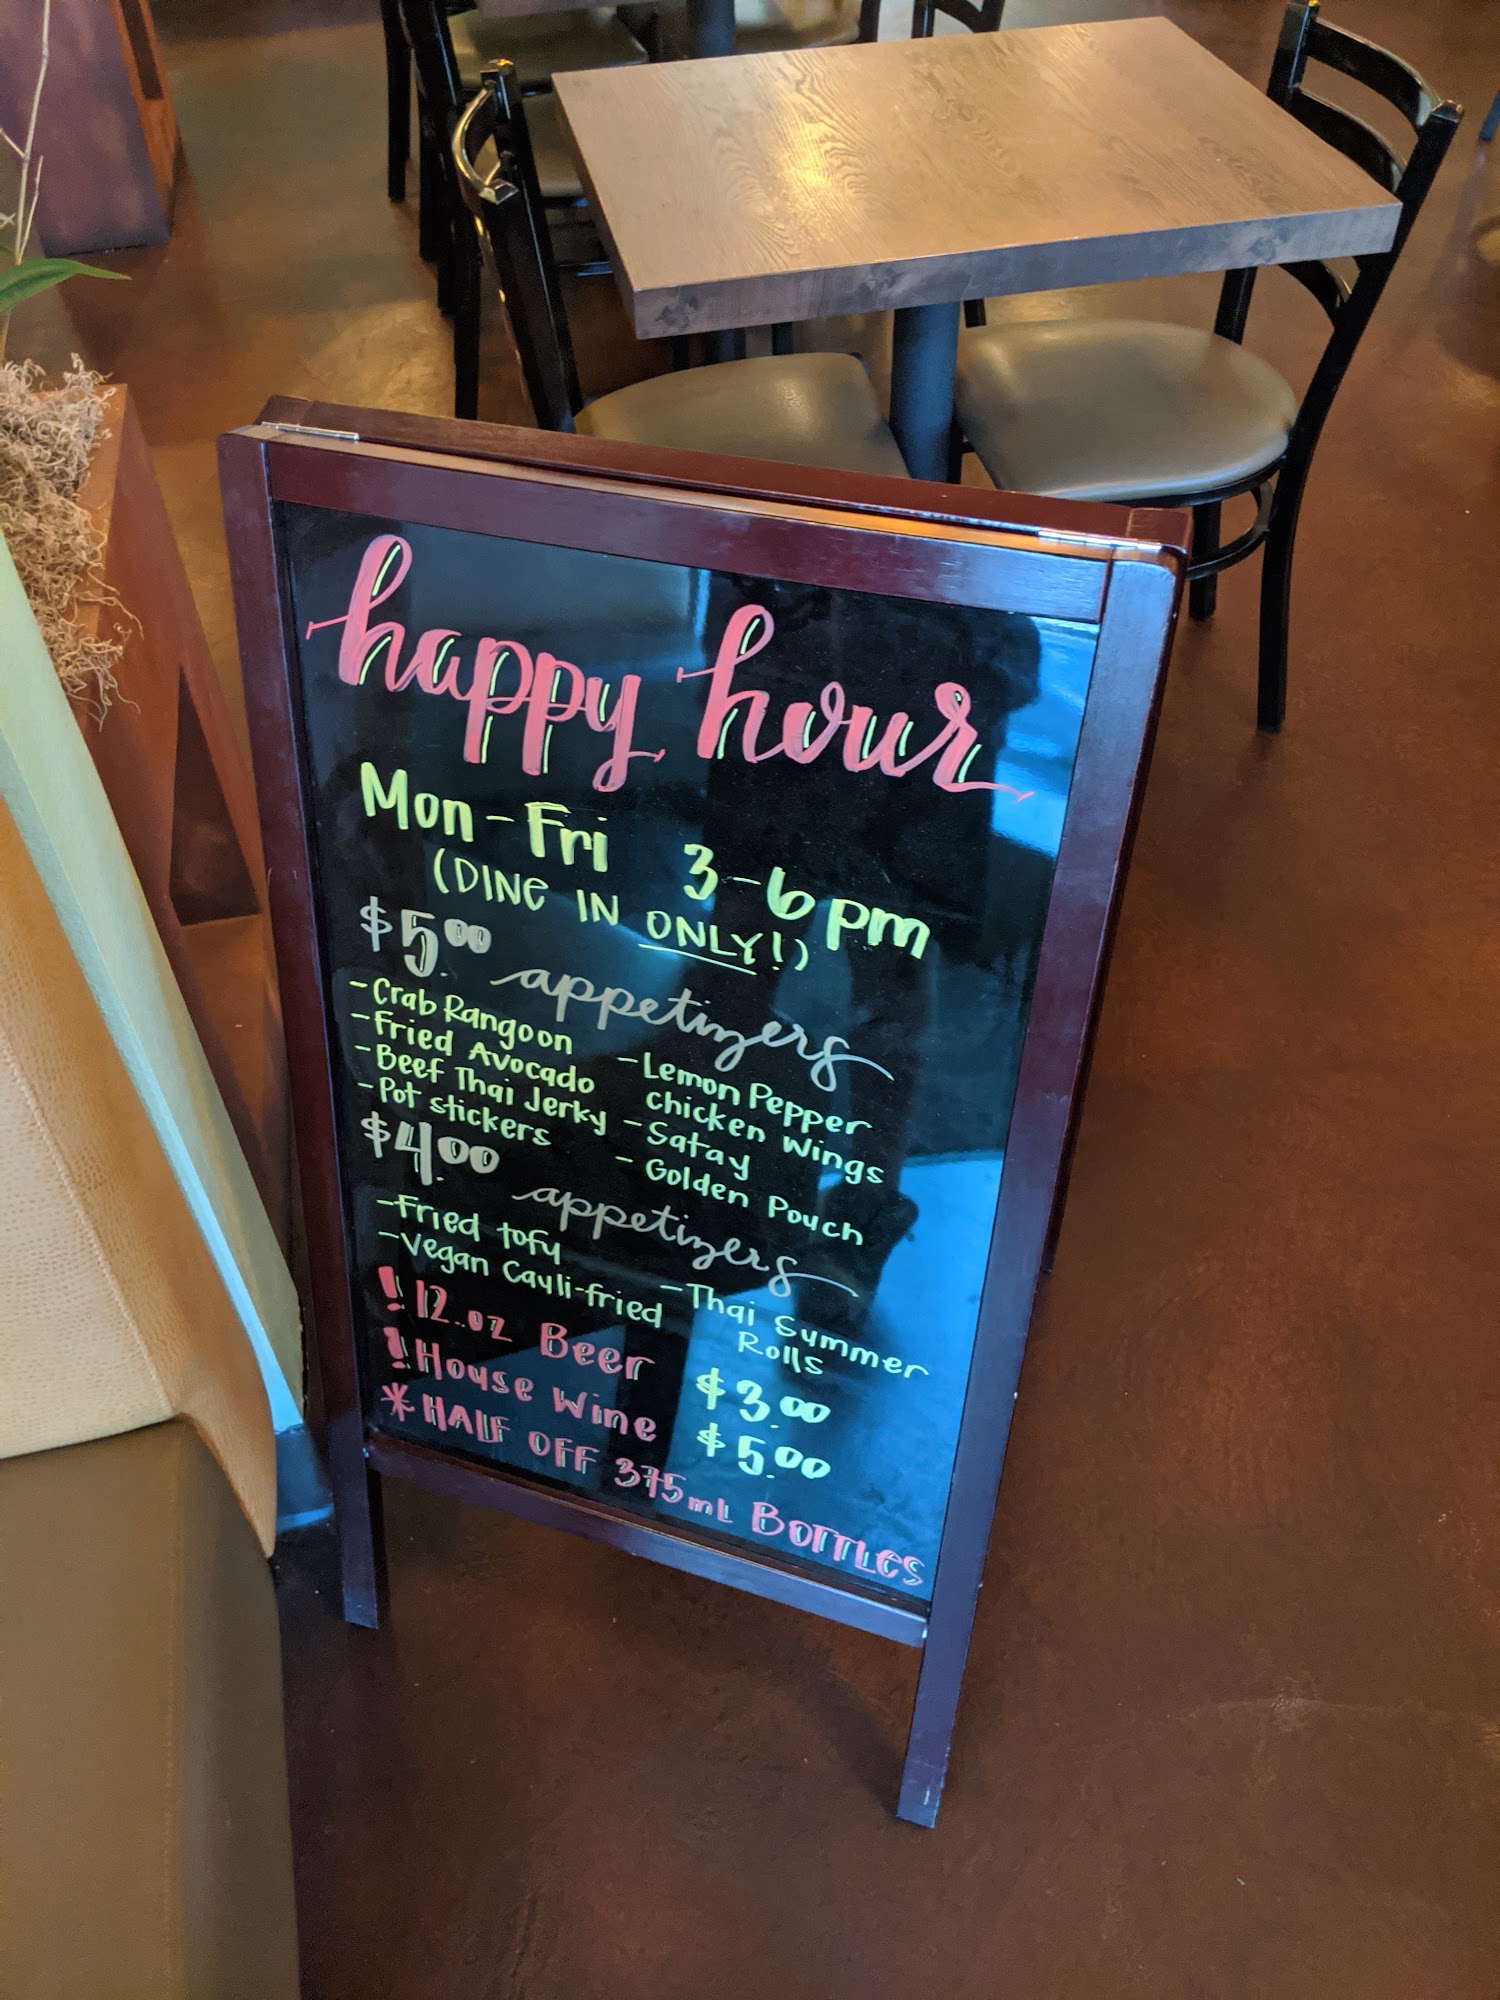 happy hour
Mon-Fri 3-6pm
(DINE IN ONLY!)
$5.00 appetizers
-Crab Rangoon
-Fried Avocado
-Beef Thai Jerky
-Pot stickers
-Lemon Pepper
chicken wings
-Satay
-Golden Pouch
$4.00 appetizers
-Fried tofy
-Vegan Cayli-fried
-Thai Summer
Rolls
! 12.oz Beer $3.00
! House Wine $5.00
* HALF OFF 375mL BOTTLES